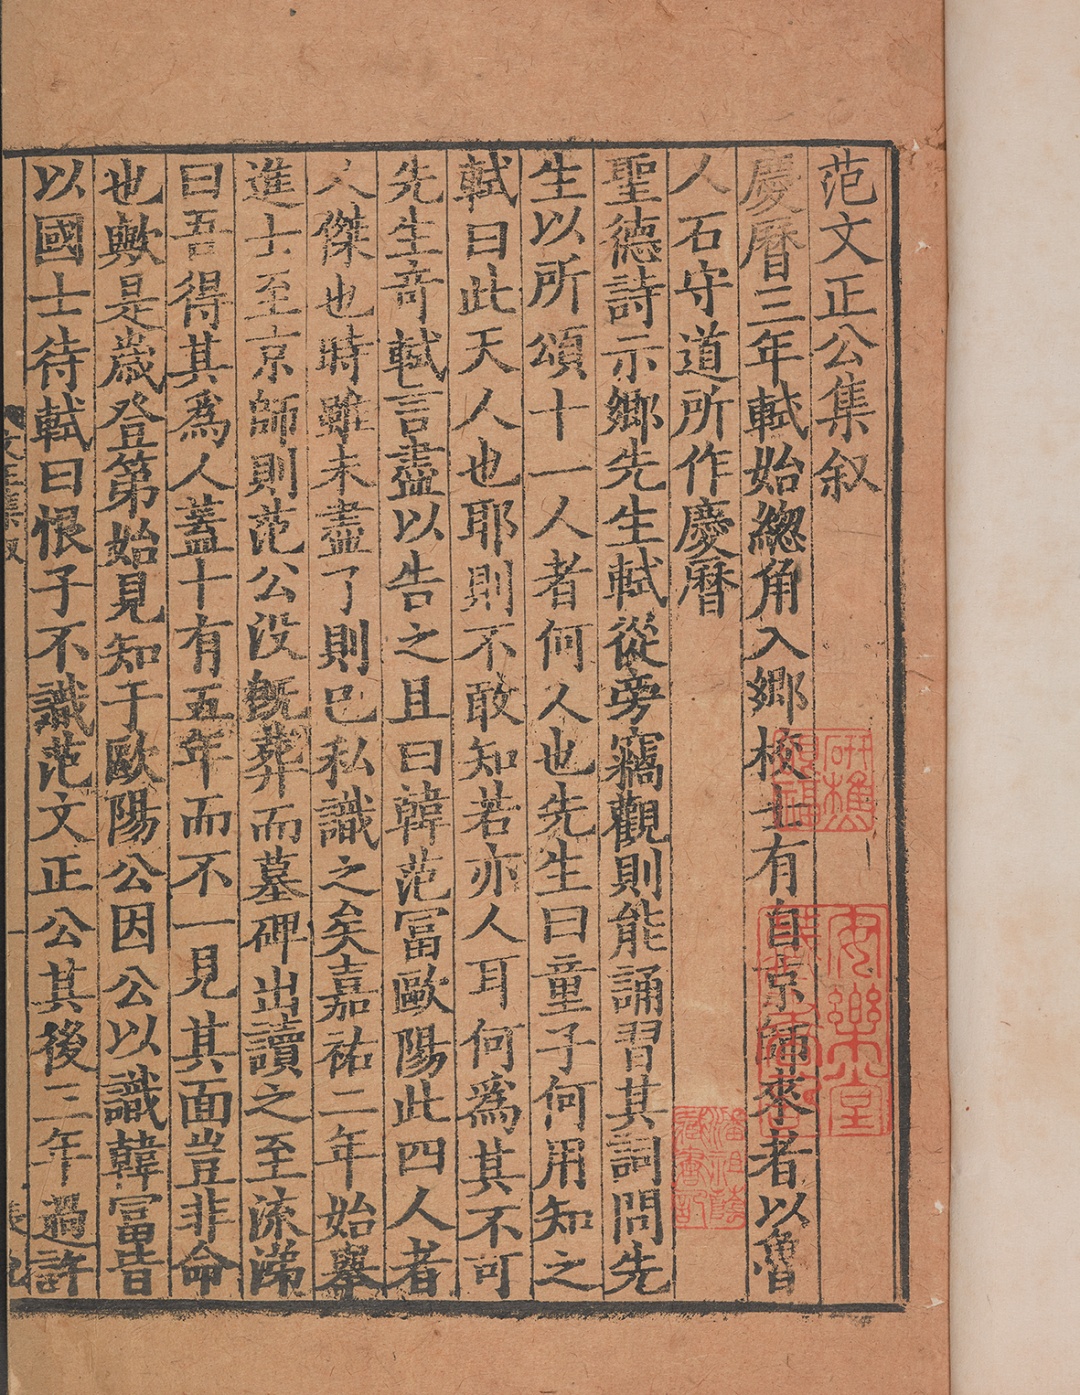 范文正公集叙
慶曆三年軾始總角入鄉校士有自京師來者以魯
人石守道所作慶曆
聖德詩示鄉先生軾從旁竊觀則能誦習其詞問先
生以所頌十一人者何人也先生曰童子何用知之
軾曰此天人也耶則不敢知若亦人耳何爲其不可
先生奇軾言盡以告之且曰韓范冨歐陽此四人者
人傑也時雖未盡了則已私識之矣嘉祐二年始舉
進士至京師則范公没既葬而墓碑出讀之至流涕
曰吾得其爲人蓋十有五年而不一見其面豈非命
也歟是歲登第始見知于歐陽公因公以識韓富皆
以國士待軾曰恨子不識范文正公其後三年過許
安樂堂
潘祖蔭
藏書記